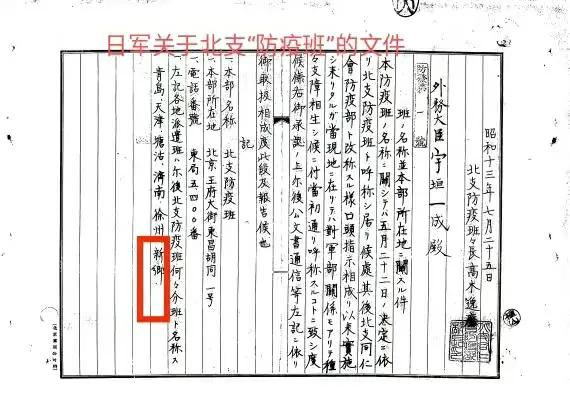 日军关于北支“防疫班”的文件
防疫第一號
昭和十三年七月二十五日
北支防疫班々長高木逸磨
外務大臣宇垣一成殿
班ノ名称並本部所在地ニ關スル件
本防疫班ノ名称ニ關シテハ五月二十二日ノ決定ニ依
リ北支防疫班ト呼称シ居リ候處其後北支同仁
會防疫部ト改称スル様口頭指示相成リ以来實施
シ来リタルガ當現地ニ在リテハ對軍部關係モアリテ種
々支障相生シ候ニ付當初通リ呼称スルコトニ致シ度
候條右御承認ノ上尓後公文書通信等左記ニ依リ
御取扱相成度此段及報告候也
記
一、本部名称 北支防疫班
一、本部所在地 北京王府大街東昌胡同一号
一、電話番號 東局五四〇〇番
一、左記各地派遣班ハ尓後北支防疫班何々分班ト名称ス
青島、天津、塘沽、濟南、徐州、新鄉、